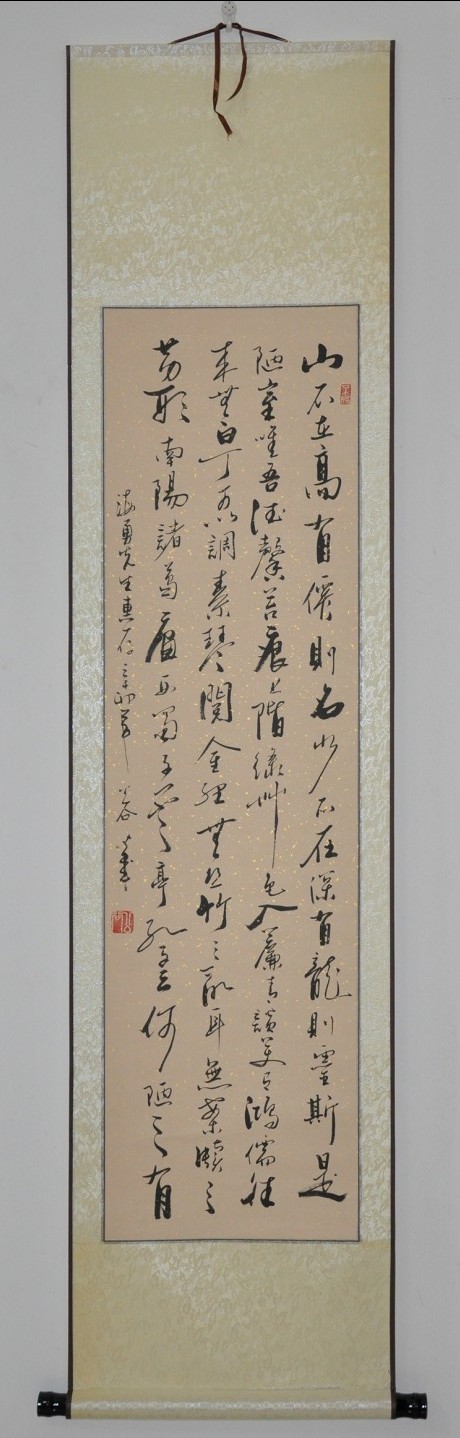 山不在高有僊則名水不在深有龍則靈斯是
陋室唯吾德馨苔痕上階綠艸色入簾青談笑有鴻儒往
來無白丁可以調素琴閱金經無絲竹之亂耳無案牘之
勞形南陽諸葛廬西蜀子雲亭孔子云何陋之有
海勇先生惠存